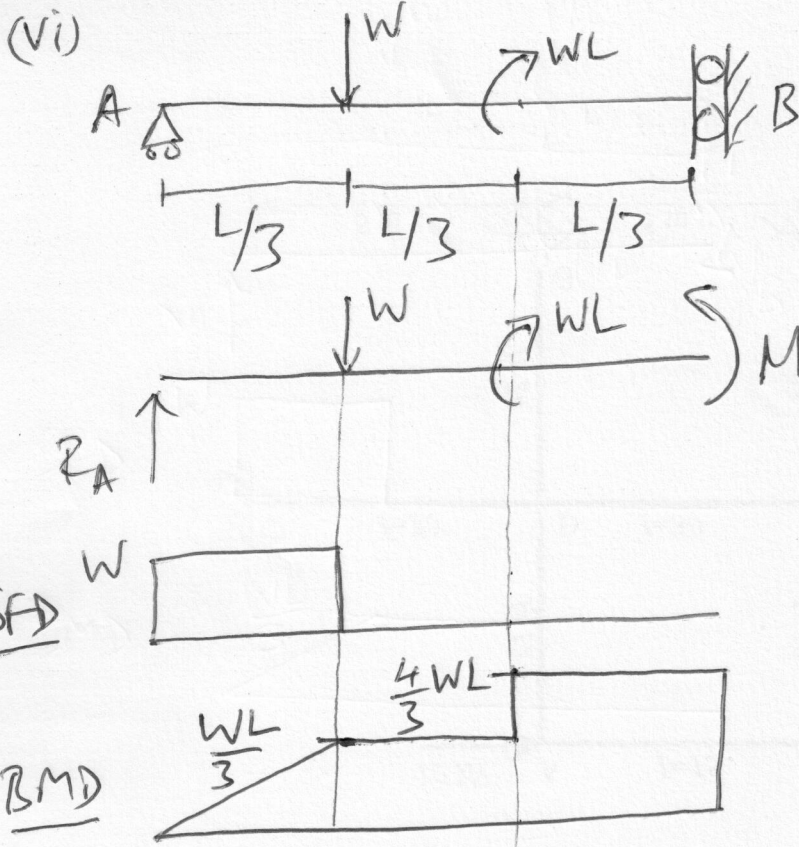 (vi)
W
WL
A
B
L/3 L/3 L/3
W
WL
M
R_A
W
SFD
4/3 WL
WL/3
BMD